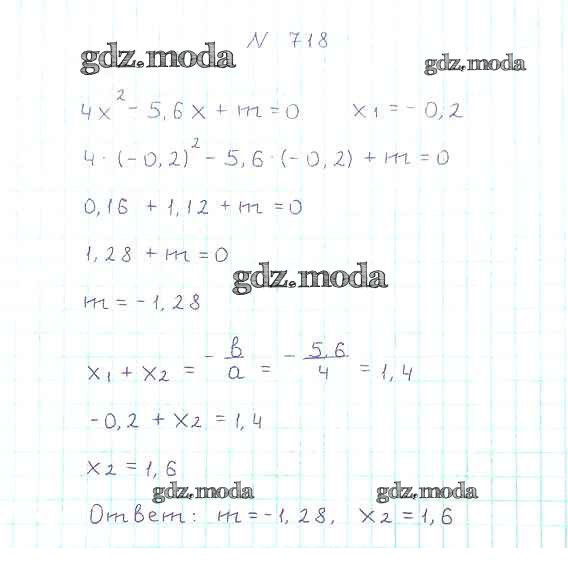 N 718
gdz.moda
gdz.moda
4x² - 5,6x + m = 0 x₁ = - 0,2
4 · (- 0,2)² - 5,6 · (- 0,2) + m = 0
0,16 + 1,12 + m = 0
1,28 + m = 0
gdz.moda
m = - 1,28
x₁ + x₂ = - в/a = - 5,6/4 = 1,4
-0,2 + x₂ = 1,4
x₂ = 1,6
gdz.moda
gdz.moda
Ответ: m = -1,28, x₂ = 1,6